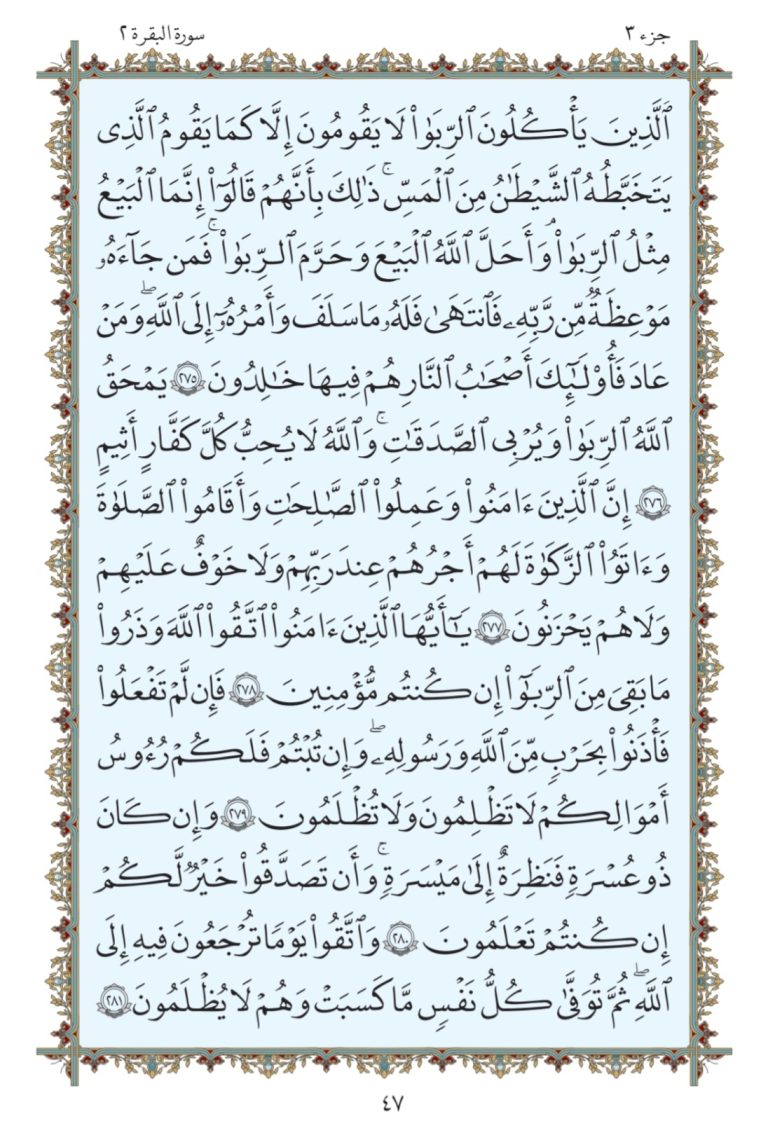 جزء ٣
سورة البقرة ٢
ٱلَّذِينَ يَأْكُلُونَ ٱلرِّبَوٰا۟ لَا يَقُومُونَ إِلَّا كَمَا يَقُومُ ٱلَّذِى
يَتَخَبَّطُهُ ٱلشَّيْطَٰنُ مِنَ ٱلْمَسِّ ۚ ذَٰلِكَ بِأَنَّهُمْ قَالُوٓا۟ إِنَّمَا ٱلْبَيْعُ
مِثْلُ ٱلرِّبَوٰا۟ ۗ وَأَحَلَّ ٱللَّهُ ٱلْبَيْعَ وَحَرَّمَ ٱلرِّبَوٰا۟ ۚ فَمَن جَآءَهُۥ
مَوْعِظَةٌ مِّن رَّبِّهِۦ فَٱنتَهَىٰ فَلَهُۥ مَا سَلَفَ وَأَمْرُهُۥٓ إِلَى ٱللَّهِ ۖ وَمَنْ
عَادَ فَأُو۟لَٰٓئِكَ أَصْحَٰبُ ٱلنَّارِ هُمْ فِيهَا خَٰلِدُونَ ٢٧٥ يَمْحَقُ
ٱللَّهُ ٱلرِّبَوٰا۟ وَيُرْبِى ٱلصَّدَقَٰتِ ۚ وَٱللَّهُ لَا يُحِبُّ كُلَّ كَفَّارٍ أَثِيمٍ
٢٧٦ إِنَّ ٱلَّذِينَ ءَامَنُوا۟ وَعَمِلُوا۟ ٱلصَّٰلِحَٰتِ وَأَقَامُوا۟ ٱلصَّلَوٰةَ
وَءَاتَوُا۟ ٱلزَّكَوٰةَ لَهُمْ أَجْرُهُمْ عِندَ رَبِّهِمْ وَلَا خَوْفٌ عَلَيْهِمْ
وَلَا هُمْ يَحْزَنُونَ ٢٧٧ يَٰٓأَيُّهَا ٱلَّذِينَ ءَامَنُوا۟ ٱتَّقُوا۟ ٱللَّهَ وَذَرُوا۟
مَا بَقِىَ مِنَ ٱلرِّبَوٰٓا۟ إِن كُنتُم مُّؤْمِنِينَ ٢٧٨ فَإِن لَّمْ تَفْعَلُوا۟
فَأْذَنُوا۟ بِحَرْبٍ مِّنَ ٱللَّهِ وَرَسُولِهِۦ ۖ وَإِن تُبْتُمْ فَلَكُمْ رُءُوسُ
أَمْوَٰلِكُمْ لَا تَظْلِمُونَ وَلَا تُظْلَمُونَ ٢٧٩ وَإِن كَانَ
ذُو عُسْرَةٍ فَنَظِرَةٌ إِلَىٰ مَيْسَرَةٍ ۚ وَأَن تَصَدَّقُوا۟ خَيْرٌ لَّكُمْ
إِن كُنتُمْ تَعْلَمُونَ ٢٨٠ وَٱتَّقُوا۟ يَوْمًا تُرْجَعُونَ فِيهِ إِلَى
ٱللَّهِ ۖ ثُمَّ تُوَفَّىٰ كُلُّ نَفْسٍ مَّا كَسَبَتْ وَهُمْ لَا يُظْلَمُونَ ٢٨١
٤٧